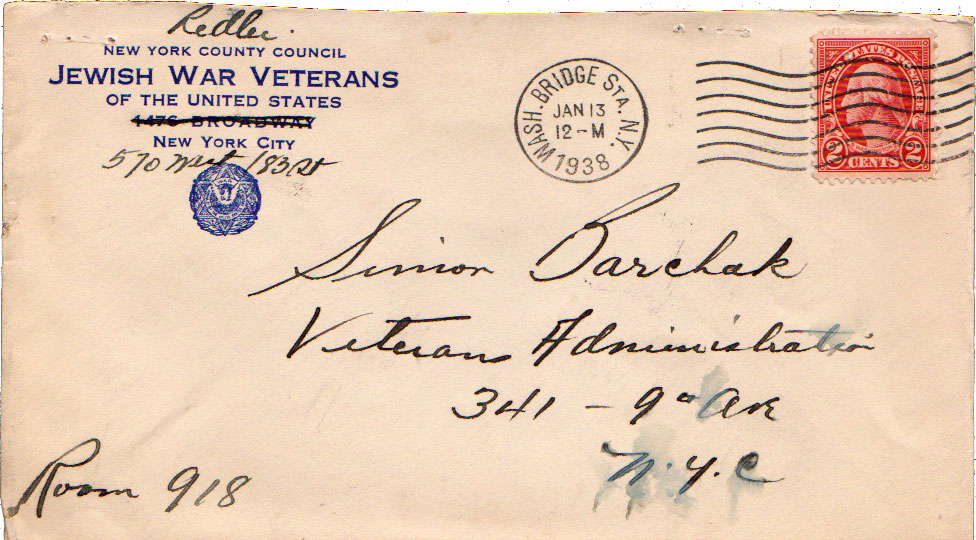 Redler
NEW YORK COUNTY COUNCIL
JEWISH WAR VETERANS
OF THE UNITED STATES
1476 BROADWAY
NEW YORK CITY
570 West 183 St
WASH. BRIDGE STA. N.Y.
JAN 13
12-M
1938
UNITED STATES POSTAGE
2 CENTS 2
Simon Barchak
Veterans Administration
341 - 9th Ave
N.Y.C
Room 918